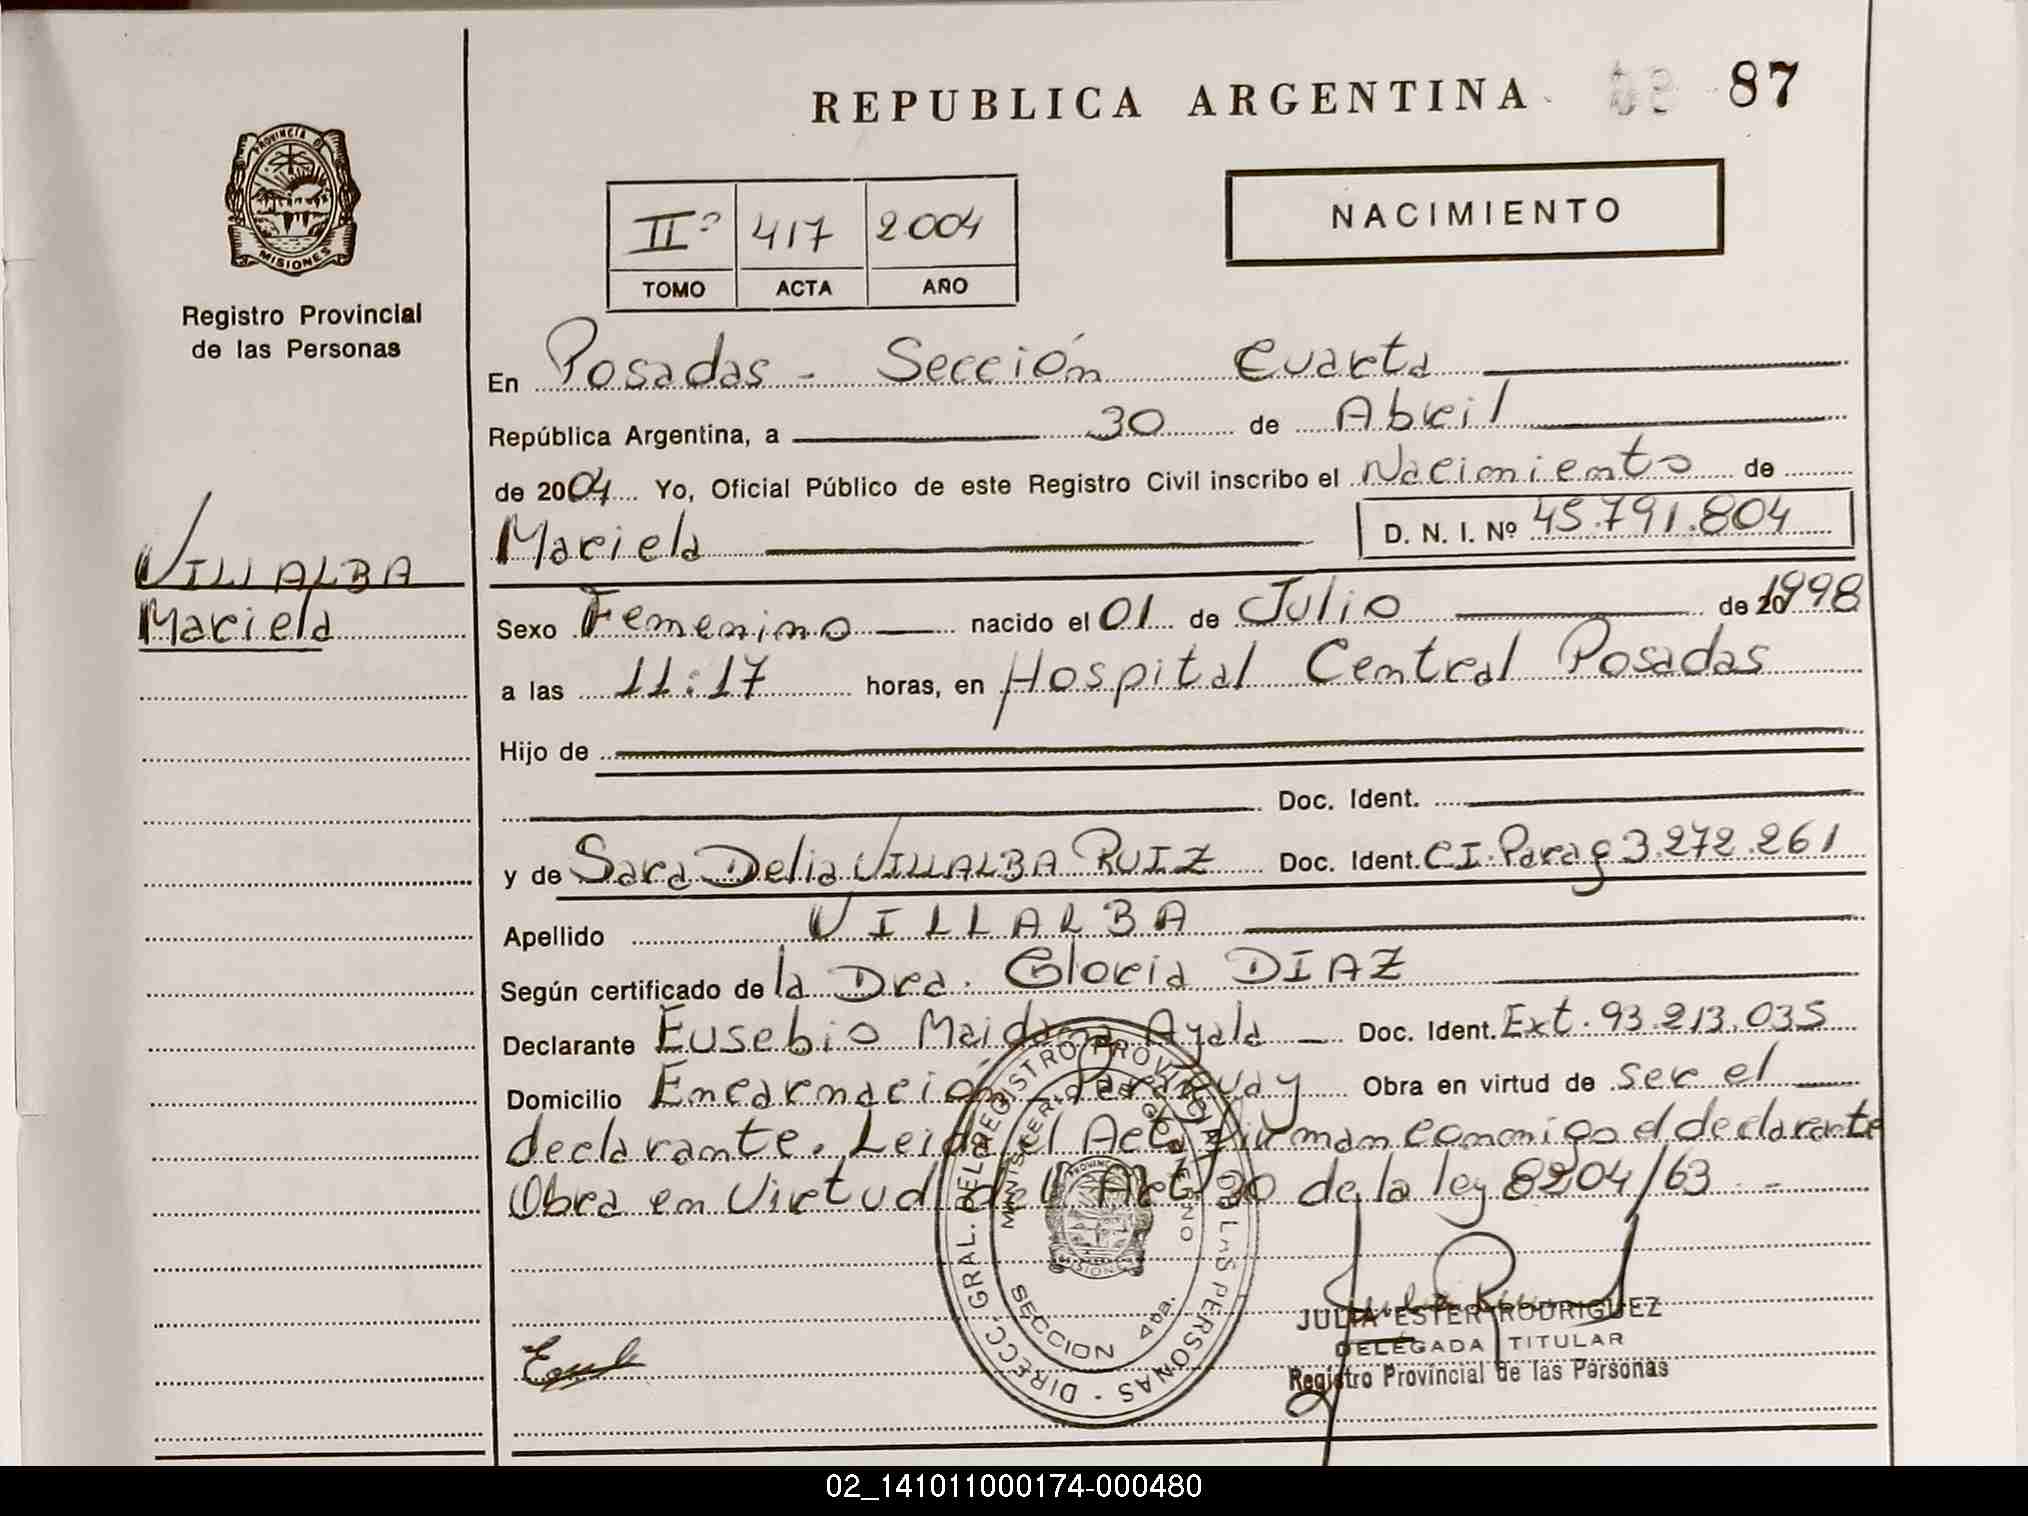 REPUBLICA ARGENTINA 87
PROVINCIA DE
MISIONES
Registro Provincial
de las Personas
IIº 417 2004
TOMO ACTA AÑO
NACIMIENTO
En Posadas - Sección Cuarta
República Argentina, a 30 de Abril
de 2004 Yo, Oficial Público de este Registro Civil inscribo el Nacimiento de
Mariela D. N. I. Nº 45.791.804
VILLALBA
Mariela
Sexo Femenino nacido el 01 de Julio de 1998
a las 11:17 horas, en Hospital Central Posadas
Hijo de
Doc. Ident.
y de Sara Delia VILLALBA RUIZ Doc. Ident. CI. Parag 3.272.261
Apellido VILLALBA
Según certificado de la Dra. Gloria DIAZ
Declarante Eusebio Maidana Ayala Doc. Ident. Ext. 93.213.035
Domicilio Encarnación - Paraguay Obra en virtud de ser el
declarante. Leida el Acta firman conmigo el declarante
Obra en Virtud del Art 30 de la ley 8204/63 -
DIRECC. GRAL. DEL REGISTRO PROVINCIAL DE LAS PERSONAS
MINISTERIO DE GOBIERNO
SECCION 4ta.
MISIONES
JULIA ESTER RODRIGUEZ
DELEGADA TITULAR
Registro Provincial de las Personas
02_141011000174-000480